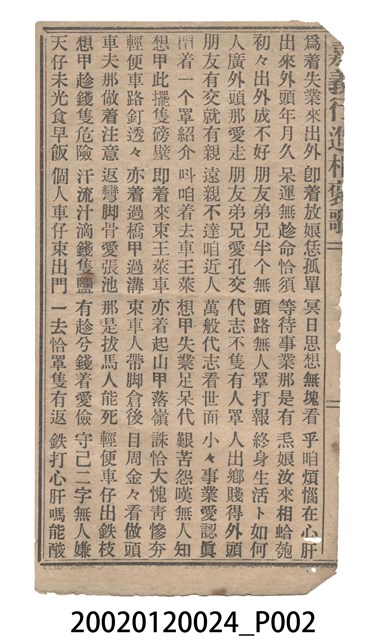 嘉義行進相褒歌
為着失業來出外　卽着放娘恁孤單　冥日思想無塊看　乎咱煩惱在心肝
出來外頭年月久　呆運無趁命恰須　等待事業那是有　焄娘汝來相蛤匏
初々出外成不好　朋友弟兄半个無　頭路無人罩打報　終身生活卜如何
人廣外頭那愛走　朋友弟兄愛孔交　代志不隻有人罩　人出鄉賤得外頭
朋友有交就有親　遠親不達咱近人　萬般代志看世面　小々事業愛認眞
着一个罩紹介　叫咱着去車王萊　想甲失業足呆代　艱苦怨嘆無人知
想甲此擺隻磅壁　卽着來束王萊車　亦着起山甲落嶺　誅恰大愧青慘夯
輕便車路釘透々　亦着過橋甲過溝　束車人帶脚倉後　目周金々看做頭
車夫那做着注意　返彎脚骨愛張池　那是拔馬人能死　輕便車仔出鉄枝
想甲趁錢隻危險　汗流汁滴錢隻鹽　有趁兮錢着愛儉　守己二字無人嫌
天仔未光食早飯　個人車仔束出門　一去恰罩隻有返　鉄打心肝嗎能酸
20020120024_P002